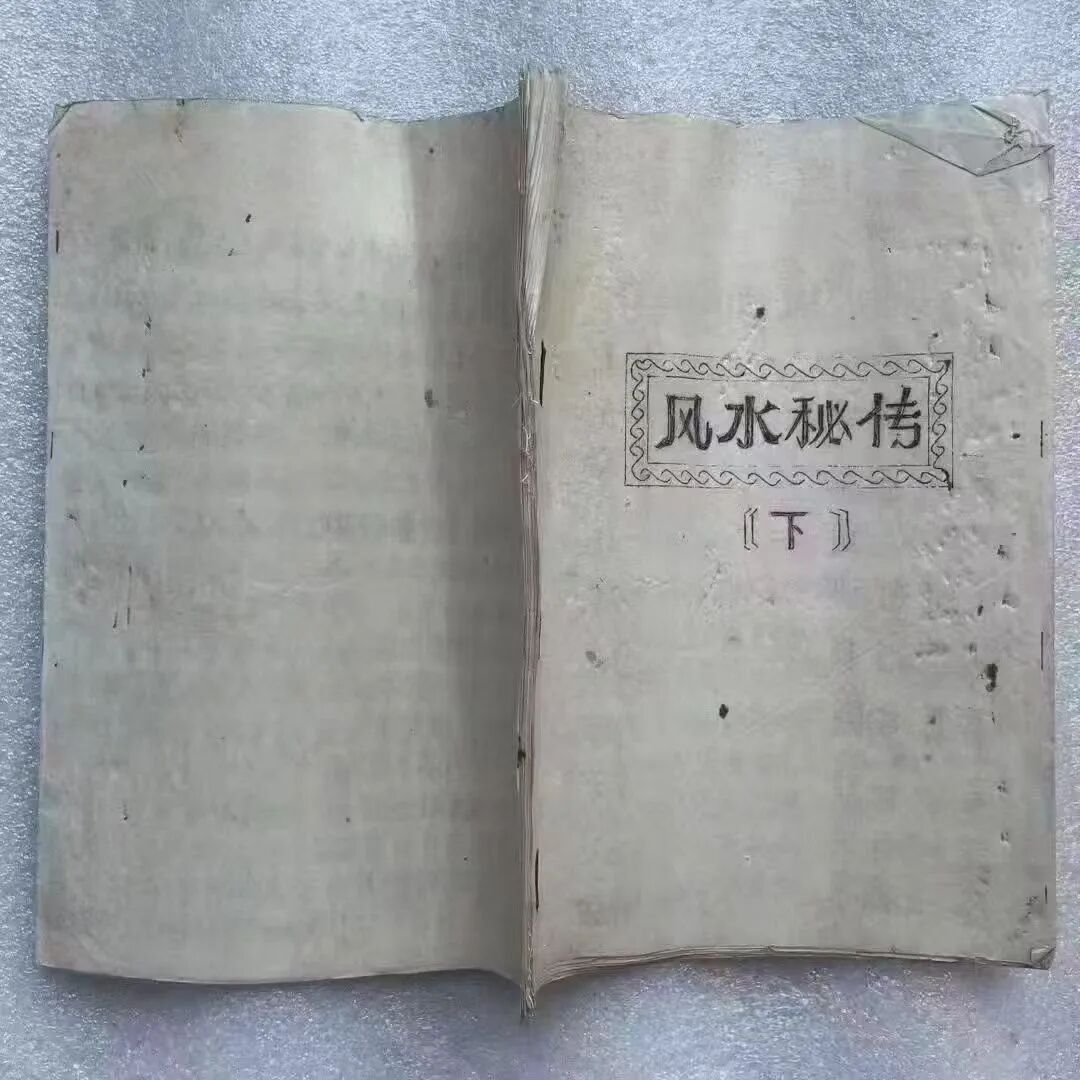 风水秘传
〖下〗